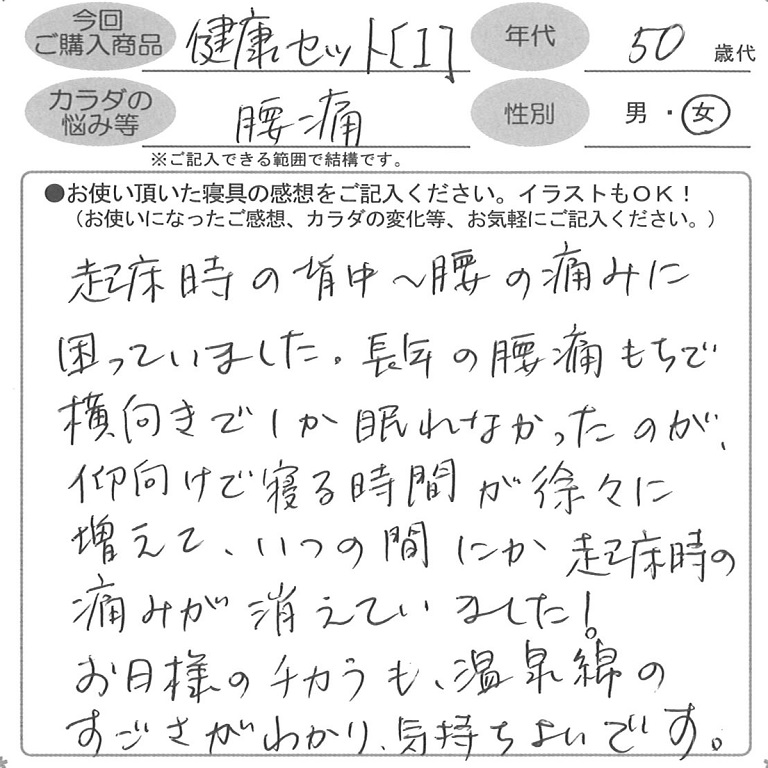 今回
ご購入商品 健康セット[I] 年代 50 歳代
カラダの
悩み等 腰痛 性別 男・女
※ご記入できる範囲で結構です。
●お使い頂いた寝具の感想をご記入ください。イラストもOK!
(お使いになったご感想、カラダの変化等、お気軽にご記入ください。)
起床時の背中～腰の痛みに
困っていました。長年の腰痛もちで
横向きでしか眠れなかったのが、
仰向けで寝る時間が徐々に
増えて、いつの間にか起床時の
痛みが消えていました!
お日様のチカラも、温泉綿の
すごさがわかり、気持ちよいです。